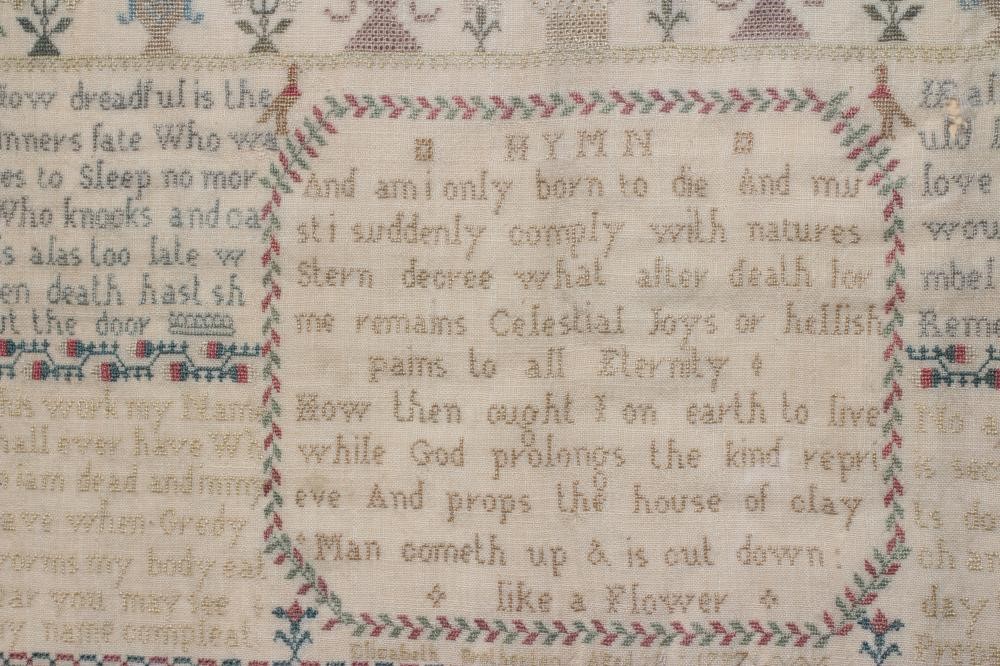 How dreadful is the
inners fate Who wa
es to Sleep no mor
Who knooks and oa
s alas too late w
en death hast sh
ut the door
HYMN
And am i only born to die And mu
st i suddenly comply with natures
Stern decree what after death for
me remains Celestial Joys or hellish
pains to all Eternity
How then ought I on earth to live
while God prolongs the kind repri
eve And props the house of clay
Man cometh up & is cut down:
like a Flower
uld
love
wou
mbel
Reme
work my Name
hall ever have Wh
iam dead and in my
ave when Gredy
worms my body eat
ear you may see
my name compleat
No a
is sec
ts do
ch an
day
Elizabeth